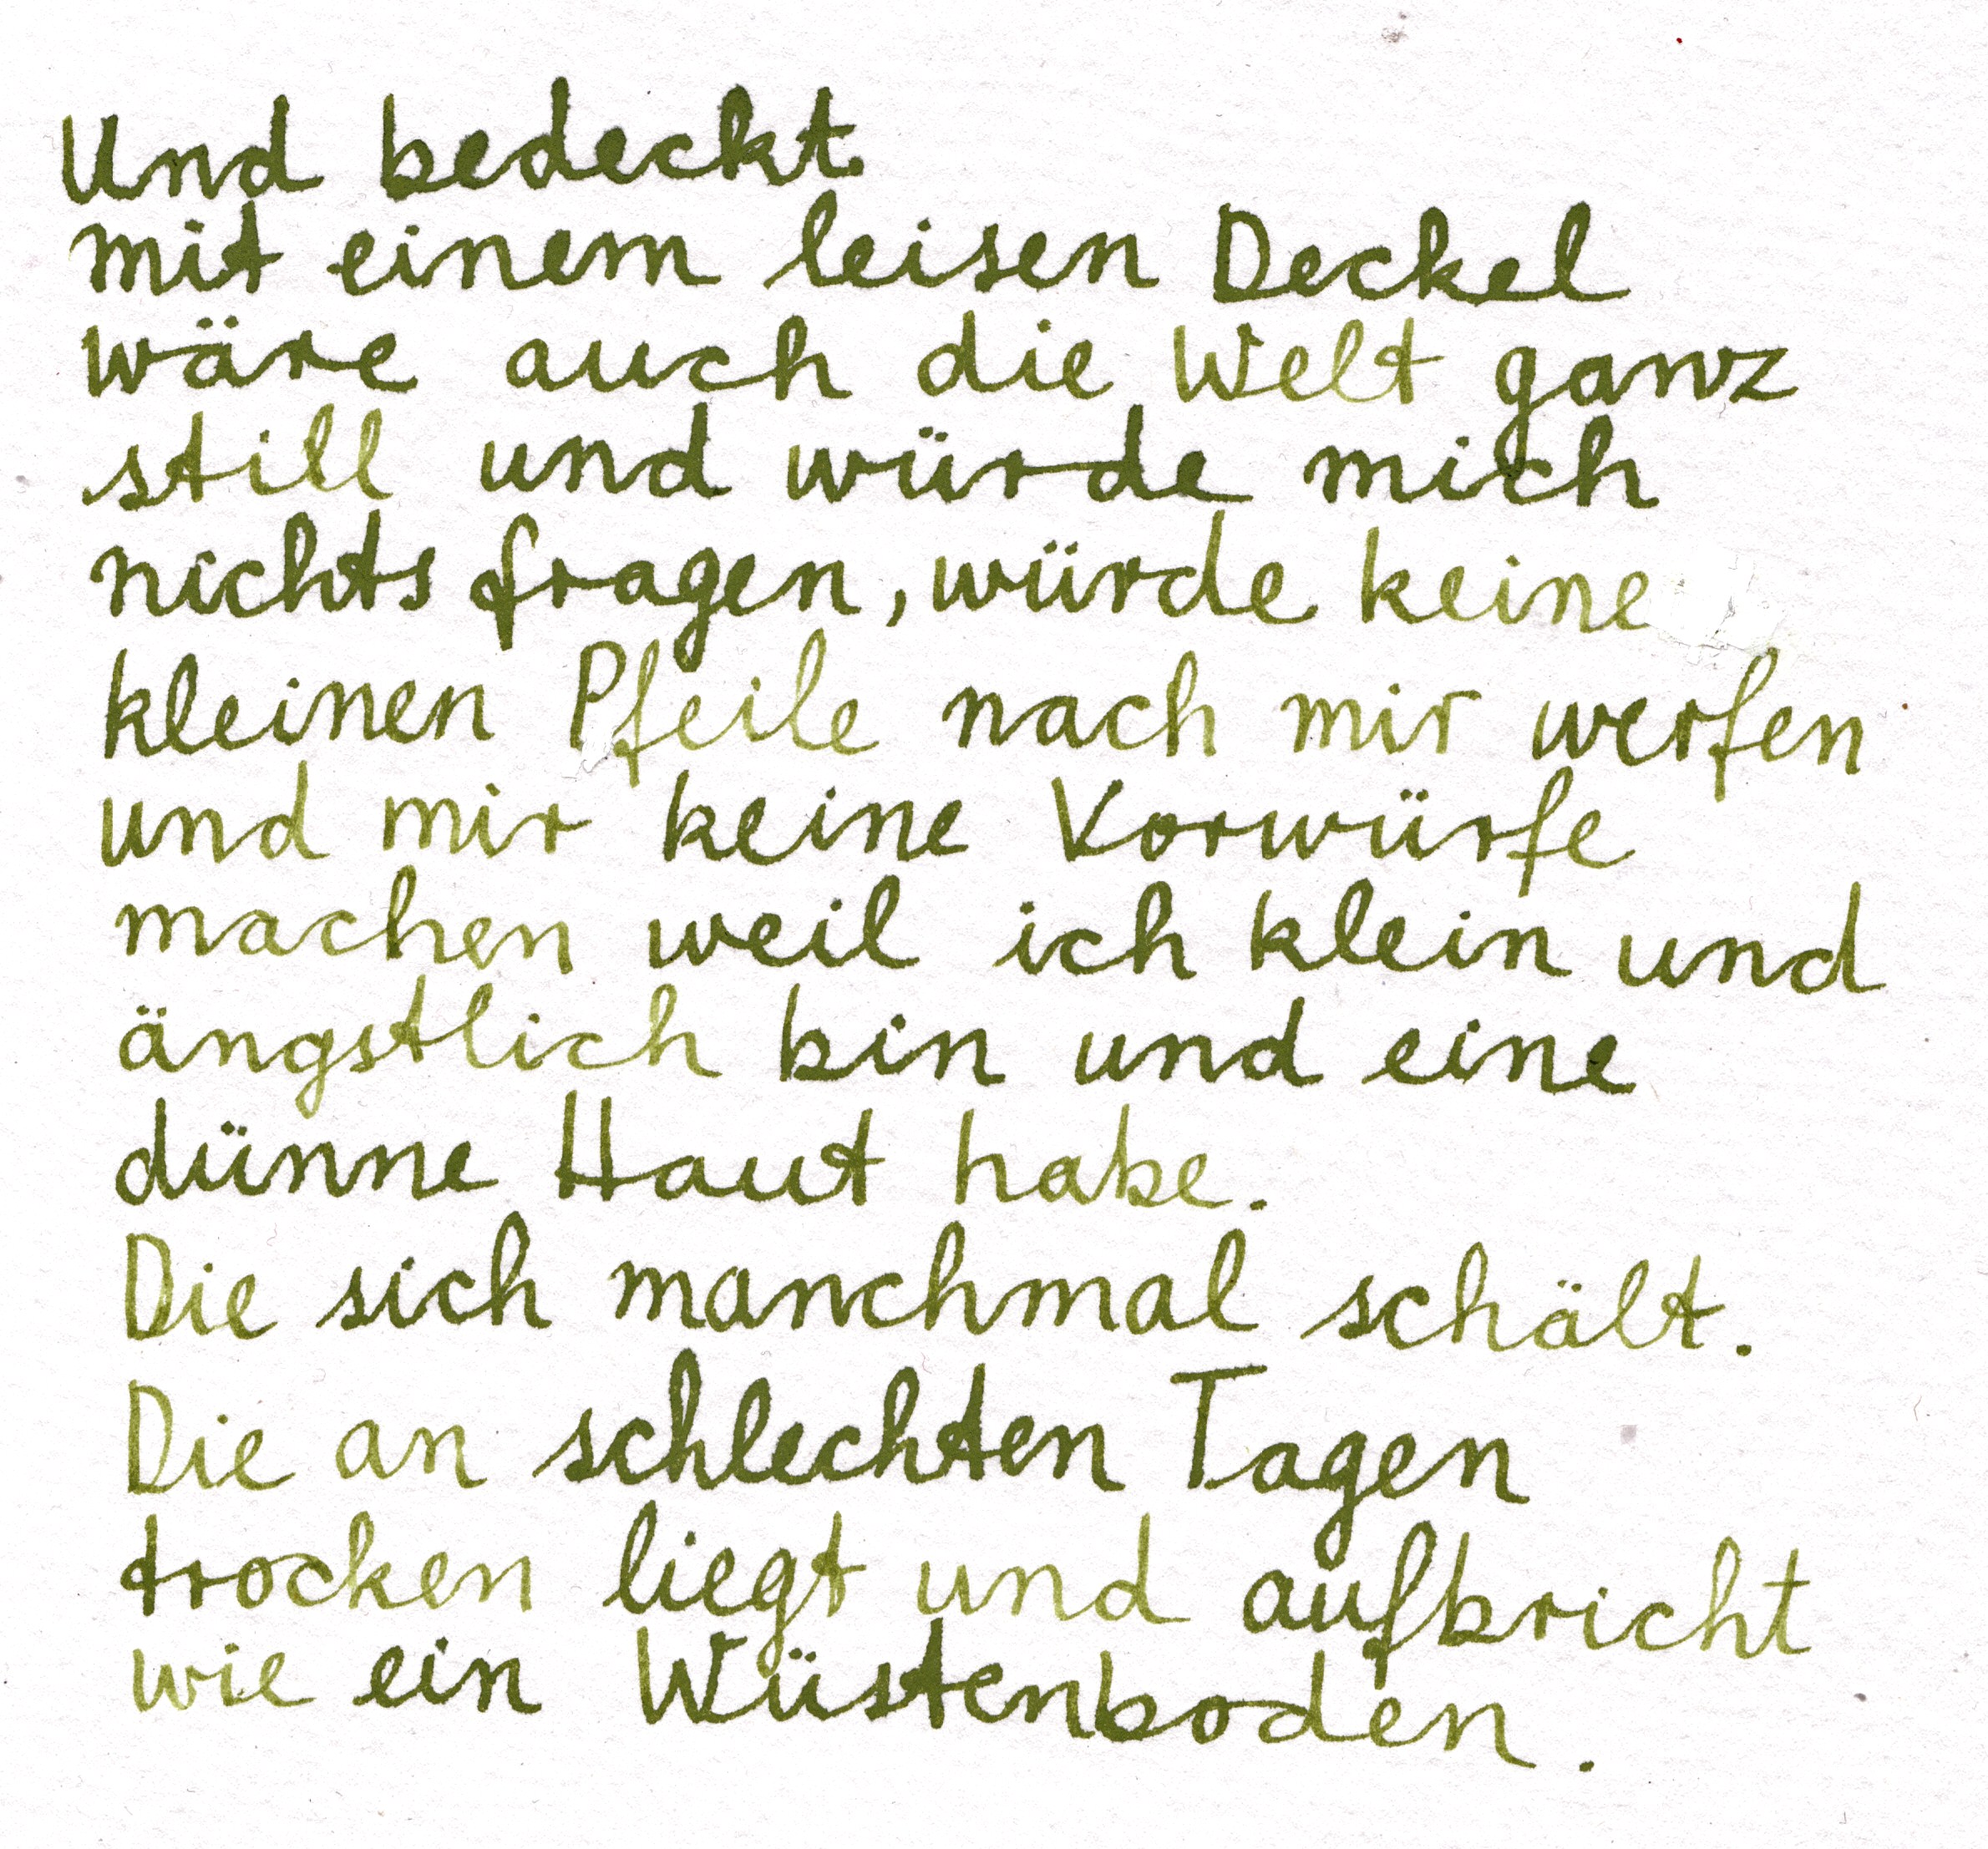 Und bedeckt
mit einem leisen Deckel
wäre auch die Welt ganz
still und würde mich
nichts fragen, würde keine
kleinen Pfeile nach mir werfen
und mir keine Vorwürfe
machen weil ich klein und
ängstlich bin und eine
dünne Haut habe.
Die sich manchmal schält.
Die an schlechten Tagen
trocken liegt und aufbricht
wie ein Wüstenboden.